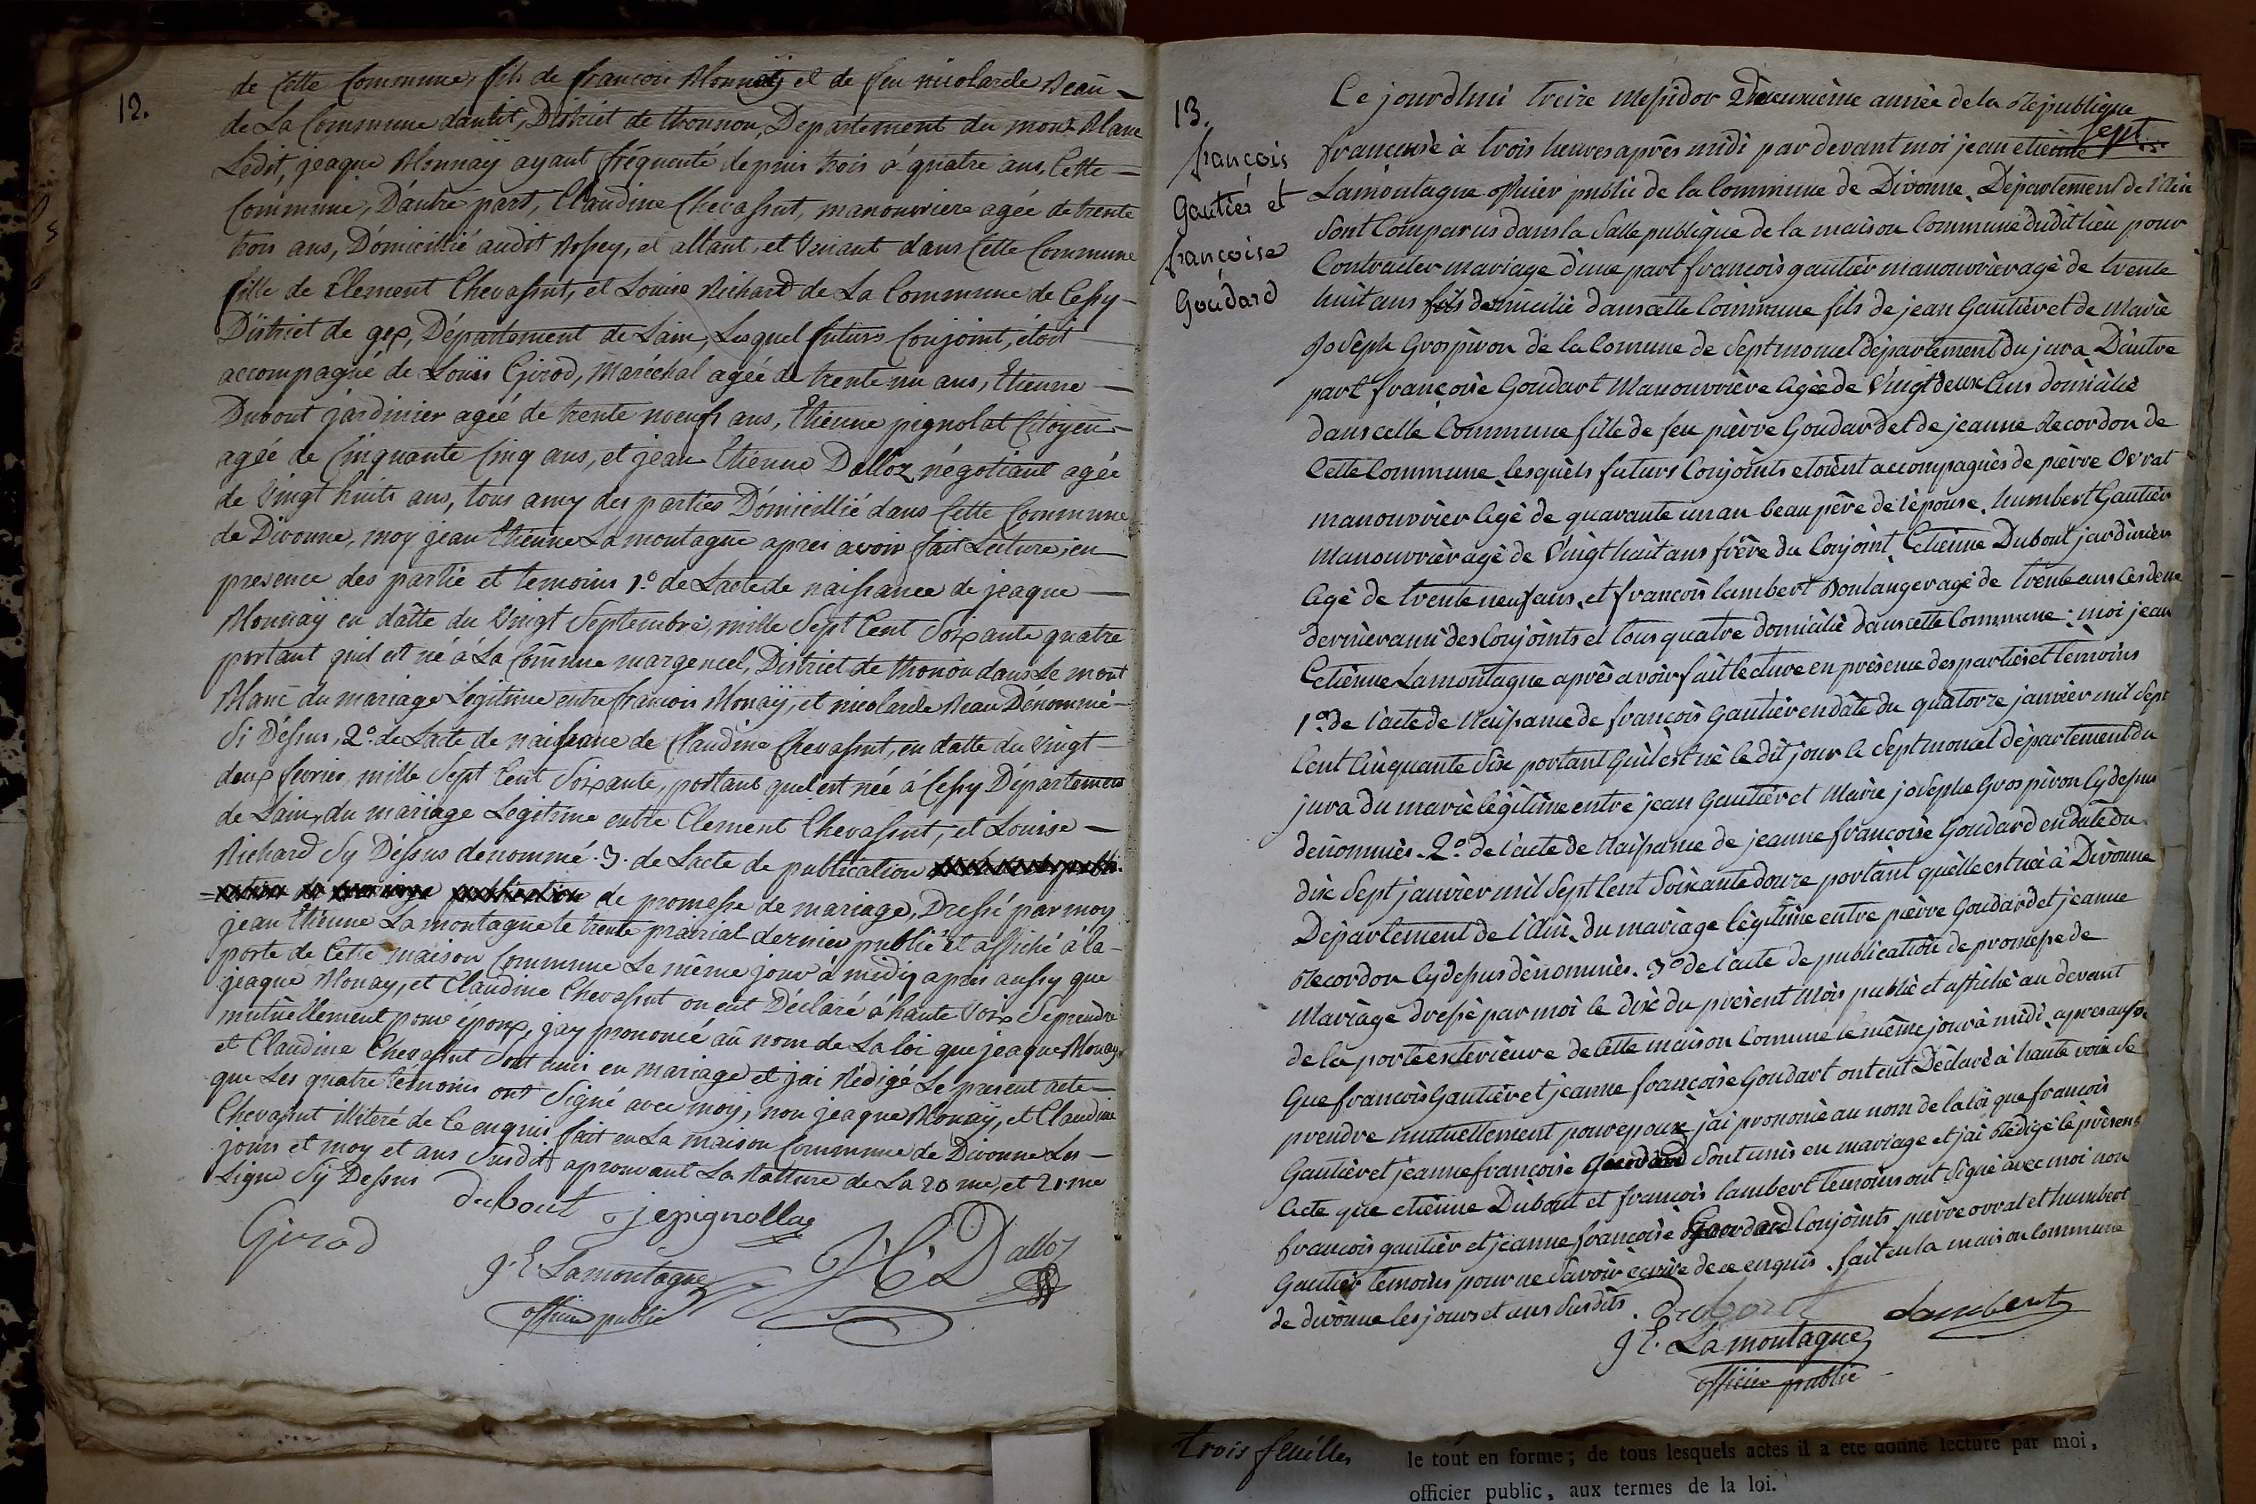 12.
de cette Commune, fils de françois Monnaÿ et de feu nicolarde Beau-
de La Commune dantit, District de thonnon, Departement du mont Blanc
Ledit, jeaque Monnaÿ ayant fréquenté depuis trois á quatre ans, Cette
Commune, D'autre part, Claudine Chevassut, manouvriere agée de trente
trois ans, Domicillié audit, et allant, et Venant dans Cette Commune
fille de Clement Chevassut, et Louise Richard de La Commune de Cessy-
District de gex, Département de Lain, Lesquel futurs Conjoint, étoit
accompagné de Louis Girod, Maréchal agée de trente un ans, Etienne
Dubout jardinier agée de trente noeufs ans, Etienne pignolat Citoyen-
agée de Cinquante Cinq ans, et jean Etienne Dalloz négotiant agée
de Vingt huits ans, tous amy des parties Domicillié dans Cette Commune
de Divonne, moy jean Etienne Lamontagne apres avoir fait Lecture, en
presence des partie et temoins 1.° de Lacte de naissance de jeaque
Monnaÿ en datte du Vingt Septembre, mille Sept Cent Soixante quatre
portant quil est né á La Comune margencel, District de thonon dans Le mont
Blanc du mariage Légitime entre francois Monaÿ, et nicolarde Beau Dénommé-
Si Déssus, 2.° de Lacte de naissance de Claudine Chevassut, en datte du Vingt
deux fevrier, mille Sept Cent Soixante, portant quel est née á Cessy Département
de Lain, du mariage Legitime entre Clement Chevassut, et Louise
Richard Sy Déssus denommé. 3. de Lacte de publication
publication de promesse de mariage, Dressé par moy
jean Etienne Lamontagne le trente prairial dernier publié et affiché á la-
porte de Cette maison Commune Le même jour á midy apres aussy que
jeaque Monay, et Claudine Chevassut on eut Déclaré á haute Voix Se prendre
mutuellement pour époux, jay prononcé au nom de La loi que jeaque Monay
et Claudine Chevassut Sont unis en mariage et jai Rédigé Le present acte
que Les quatre témoins ont Signé avec moy, non jeaque Monaÿ, et Claudine
Chevassut illiteré de Ce enquis, fait en La maison Commune de Divonne Les
jours et moy et ans Susdit aprouvant La Ratture de La 20 me, et 21 me
Ligne Sÿ Dessus
dubout jepignollat
Girod
J. E. Lamontagne
officier public
J. E. Dalloz
13.
françois
Gautier et
françoise
Goudard
Le jourdhui treize messidor Deuxième année de la République
Sept...
françaisè à trois heures après midi par devant moi jean etienne
Lamontagne officier public de la Commune de Divonne, Département de l'Ain
Sont Comparus dans la Salle publique de la maison Commune dudit lieu pour
Contracter mariage d'une part françois gautier manouvrier agé de trente
huit ans fils domicilié dans cette Commune fils de jean Gautier et de Marie
Joseph Grospiron de la Comune de Septmoncel département du jura D'autre
part françoise Goudart Manouvrière Agée de Vingt deux Ans domicilié
dans cette Commune fille de feu pièrre Goudard et de jeanne Recordon de
Cette Commune, lesquèls futurs Conjoints etoient accompagnés de pièrre Ovrat
manouvrier Agé de quarante un an beau père de l'épouse, humbert Gautier
Manouvrier agé de Vingt huit ans frère du Conjoint, Etienne Dubout jardinier
Agé de trente neuf ans, et françois lambert Boulanger agé de trente ans Ces deux
dernier ami des Conjoints et tous quatre domicilié dans cette Commune : moi jean
Etienne Lamontagne après avoir fait lecture en présence des parties et temoins
1.° de l'acte de Naissance de françois Gautier en date du quatorze janvier mil Sept
Cent Cinquante Six portant Quil est né le dit jour a Septmoncel département du
jura du marié légitime entre jean Gautier et Marie josephe Grospiron Cy dessus
dénommés. 2.° de l'acte de Naissance de jeanne françoise Goudard en date du
dix Sept janvier mil Sept Cent Soixante douze portant quelle est née à Divonne
Département de l'Ain, du mariage légitime entre pièrre Goudard et jeanne
Recordon Cy dessus dénommés. 3.° de l'acte de publication de promesse de
Mariage dressé par moi le dix du présent Mois publié et affiché au devant
de la porte exterieure de Cette maison Comune le même jour à midi, apres aussi
Que françois Gautier et jeanne françoise Goudart ont eut Déclaré à haute voix Se
prendre mutuellement pour epoux, j'ai prononcé au nom de la loi que françois
Gautier et jeanne françoise Goudard Sont unis en mariage et j'ai Rédigé le présent
Acte que etienne Dubout et françois lambert temoins ont Signé avec moi non
françois gautier et jeanne françoise Goudard Conjoints, pièrre ovrat et humbert
Gautier témoins pour ne Savoir écrire de ce enquis. fait en la maison Commune
de divonne les jours et ans Susdits. Dubout
Lambert
J E. Lamontagne
officier public
trois feuilles
le tout en forme; de tous lesquels actes il a été donné lecture par moi,
officier public, aux termes de la loi.